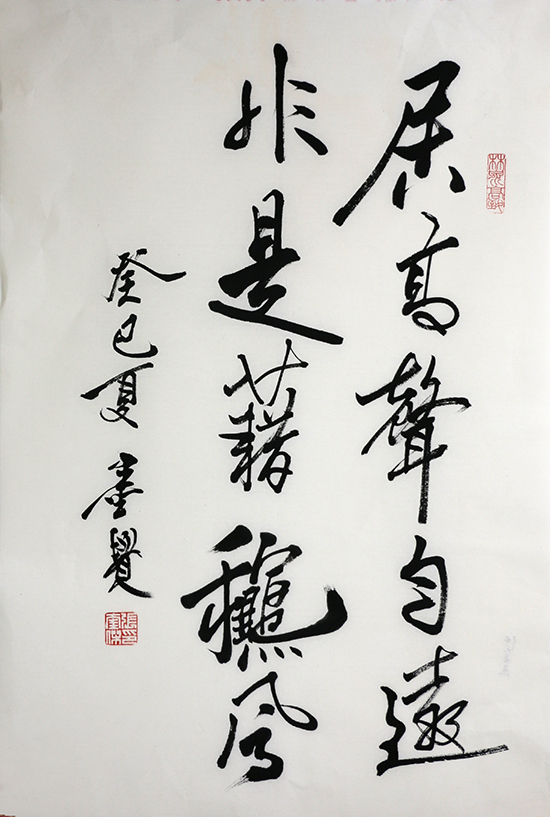 居高聲自遠
非是藉龝風
癸巳夏